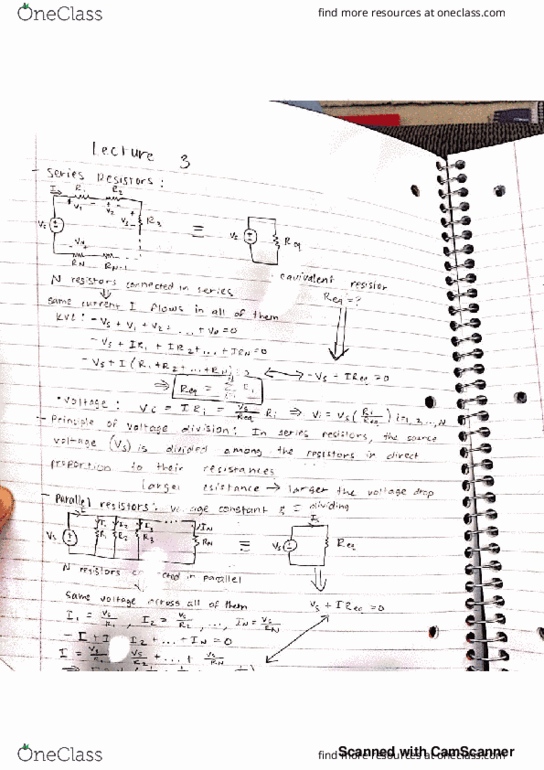 OneClass
find more resources at oneclass.com
Lecture 3
- Series Resistors:
I R1 R2
+ V1 - + V2 - + V3 - R3
Vs
RN RN-1
≡
Vs Req
equivalent resistor
Req = ?
N resistors connected in series
⇓
same current I flows in all of them
KVL: -Vs + V1 + V2 + ... + VN = 0
-Vs + IR1 + IR2 + ... + IRN = 0
-Vs + I (R1 + R2 + ... + RN) = 0 ↔ -Vs + IReq = 0
⇒ Req = Σ Ri
• Voltage: Vi = IRi = Vs/Req Ri ⇒ Vi = Vs (Ri/Req) i=1, 2, ..., N
- Principle of voltage division: In series resistors, the source
voltage (Vs) is divided among the resistors in direct
proportion to their resistances
larger resistance → larger the voltage drop
- Parallel resistors: constant I dividing
Vs I1 I2 I3 IN
R1 R2 R3 RN
≡
Vs Req
N resistors connected in parallel
Same voltage across all of them
Vs + IReq = 0
I1 = Vs/R1, I2 = Vs/R2, ..., IN = Vs/RN
- I + I1 I2 + ... + IN = 0
I = Vs/R1 Vs/R2 + ... + Vs/RN
OneClass
find more resources at oneclass.com
Scanned with CamScanner